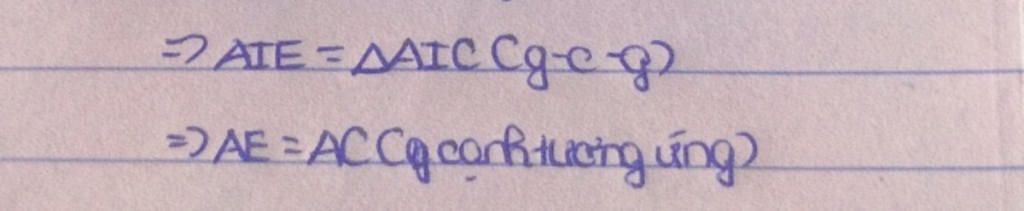 => AIE = ΔAIC (g-c-g)
=> AE = AC (g cạnh tương ứng)